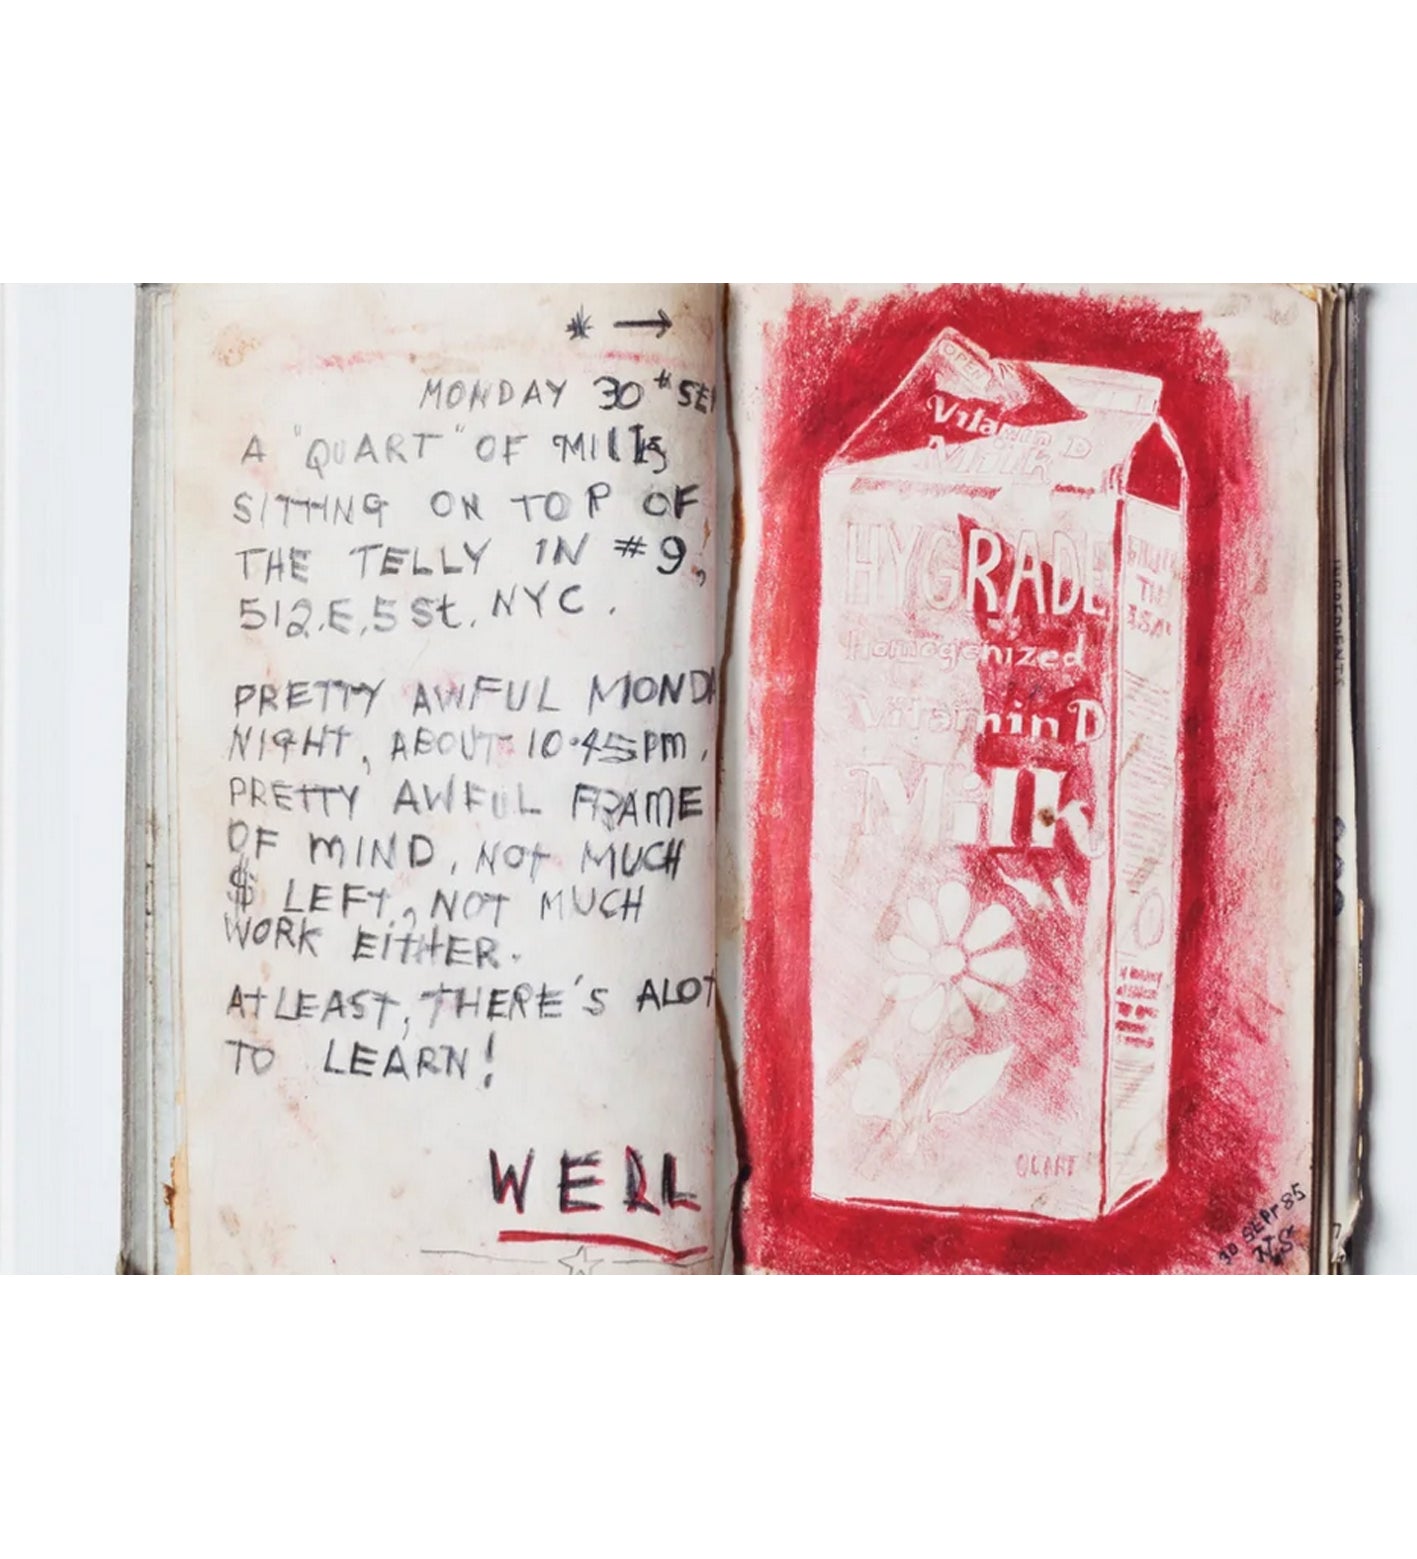 MONDAY 30th SE
A "QUART" OF MILK
SITTING ON TOP OF
THE TELLY IN #9,
512.E.5 St. NYC.
PRETTY AWFUL MOND
NIGHT, ABOUT 10.45pm.
PRETTY AWFUL FRAME
OF MIND, NOT MUCH
$ LEFT, NOT MUCH
WORK EITHER.
At LEAST, THERE'S ALOT
TO LEARN!
WELL
OPEN
Vitamin D
Milk
HYGRADE
Homogenized
Vitamin D
Milk
QUART
30 SEPT 85
N.S
INGREDIENTS